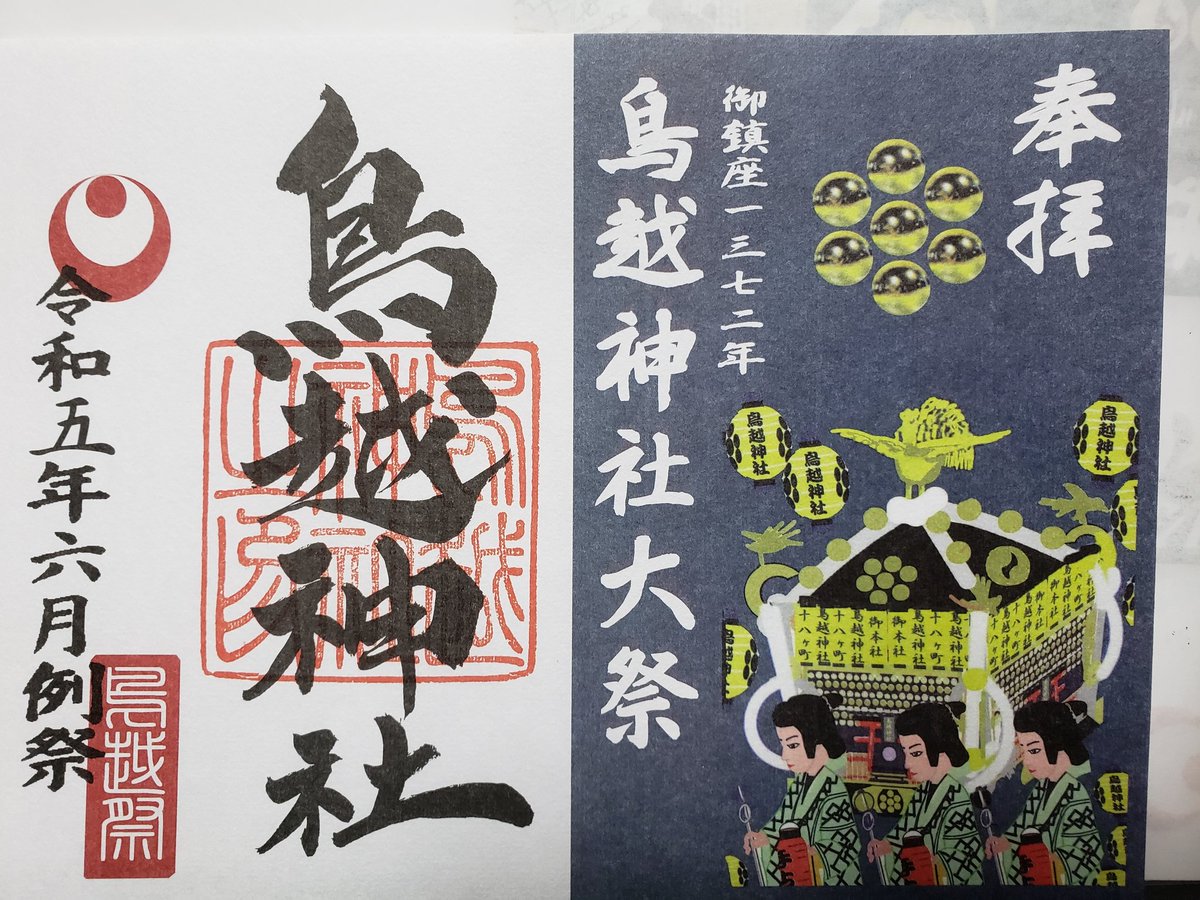 奉拝
御鎮座一三七二年
鳥越神社大祭
鳥越神社
鳥越神社
鳥越神社
鳥越神社
十八ヶ町
鳥越神社
十八ヶ町
鳥越神社
御本社
御本社
鳥越神社
十八ヶ町
鳥越神社
鳥越神社
令和五年六月例祭
鳥越祭